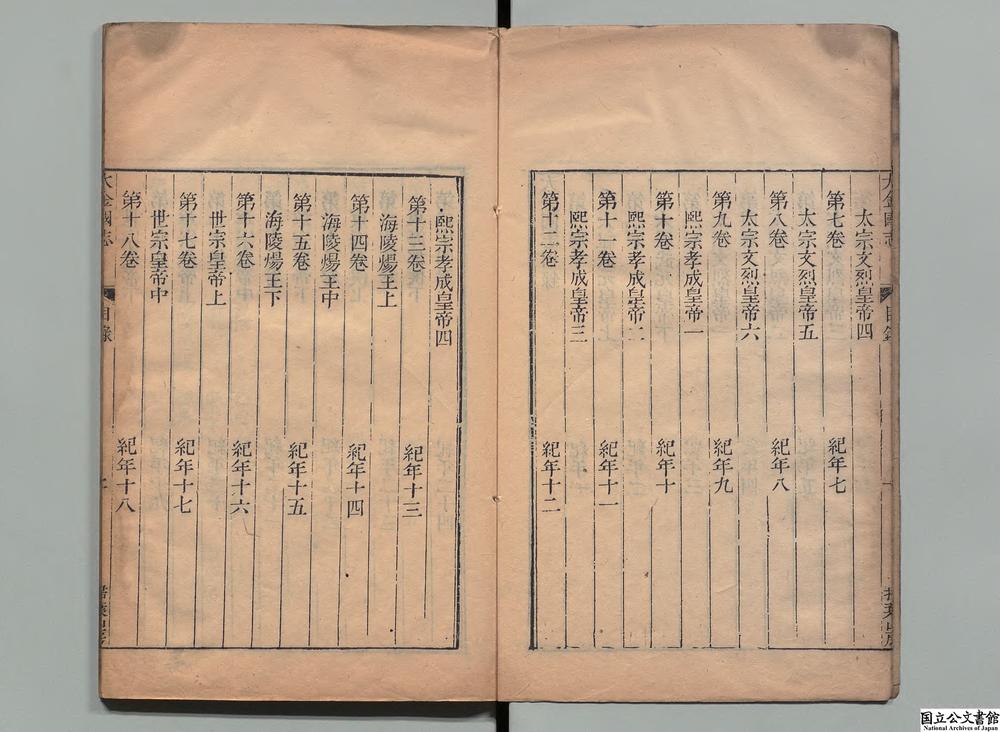 大金國志 目錄 掃葉山房
太宗文烈皇帝四
第七卷 紀年七
太宗文烈皇帝五
第八卷 紀年八
太宗文烈皇帝六
第九卷 紀年九
熙宗孝成皇帝一
第十卷 紀年十
熙宗孝成皇帝二
第十一卷 紀年十一
熙宗孝成皇帝三
第十二卷 紀年十二
熙宗孝成皇帝四
第十三卷 紀年十三
海陵煬王上
第十四卷 紀年十四
海陵煬王中
第十五卷 紀年十五
海陵煬王下
第十六卷 紀年十六
世宗皇帝上
第十七卷 紀年十七
世宗皇帝中
第十八卷 紀年十八
大金國志 目錄 掃葉山房
国立公文書館
National Archives of Japan